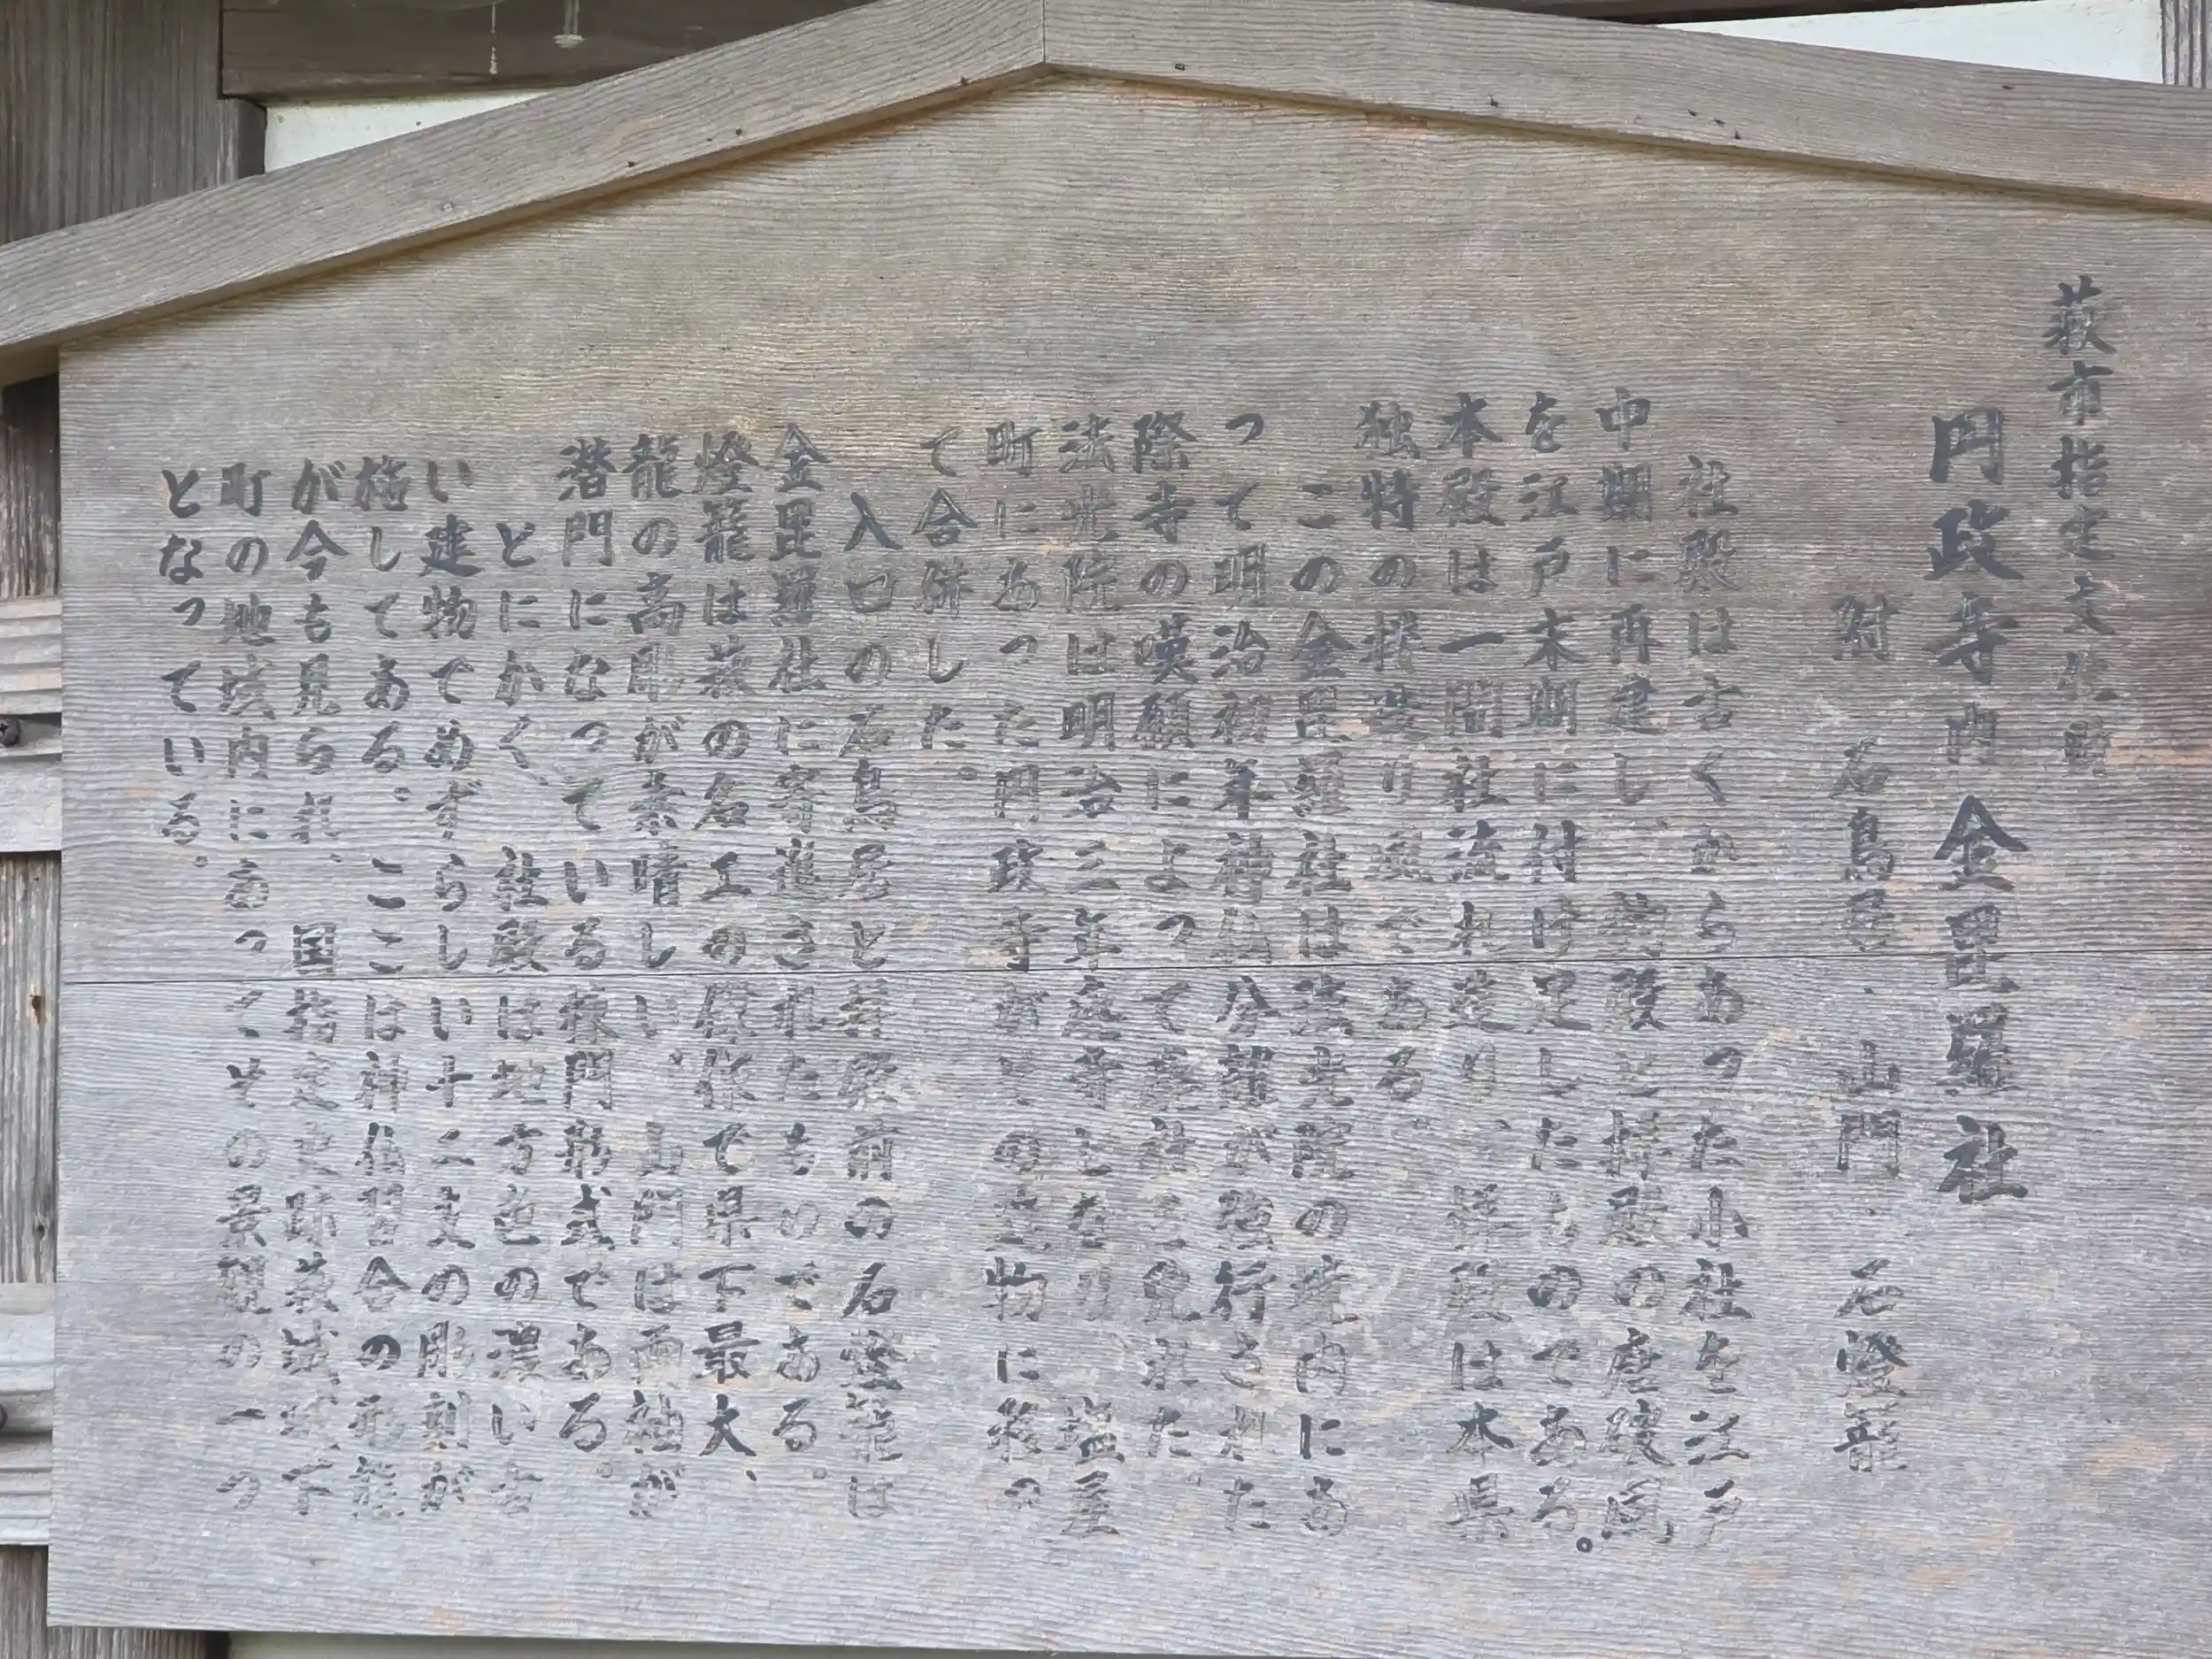 萩市指定文化財
円政寺内金毘羅社
附 石鳥居・山門・石燈籠
社殿は古くからあった小社を江戸
中期に再建し、拝殿の唐破風
を江戸末期に付け足したものである。
本殿は一間社流れ造り、拝殿は本県
独特の楼造り風である。
この金毘羅社は法光院の境内にあ
って明治初年神仏分離が強行された
際寺の嘆願によって を免れた。
法光院は明治三年 寺となり塩屋
町にあった円政寺が の建物に移っ
て合併した。
入口の石鳥居と拝殿前の石燈籠は
金毘羅社に寄進されたものである。
燈籠は萩の名工の 作で県下最大、
龍の高彫が素晴しい。山門は両袖が
潜門になっている棟門形式である。
とにかく、社殿は地方色の濃い古
い建物でめずらしい十二支の彫刻が
施してある。ここは神仏習合の形態
が今も見られ、国指定史跡萩城城下
町の地域内にあってその景観の一つ
となっている。